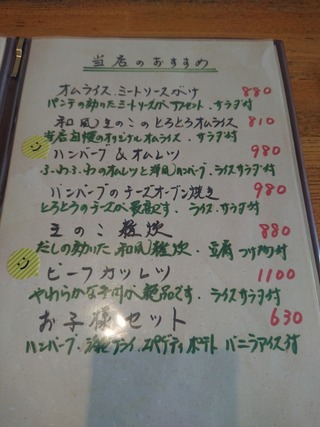 当店のおすすめ
オムライス.ミートソースがけ 880
パンチの効いたミートソースがアクセント.サラダ付
和風きのこのとろとろオムライス 810
当店自慢のオリジナルオムライス.サラダ付
ハンバーグ&オムレツ 980
ふわふわのオムレツと洋風ハンバーグ.ライスサラダ付
ハンバーグのチーズオーブン焼き 980
とろとろのチーズが最高です.ライス.サラダ付
きのこ雑炊 880
だしの効いた和風雑炊.豆腐つけ物付
ビーフカツレツ 1100
やわらかな牛肉が絶品です.ライスサラダ付
お子様セット 630
ハンバーグ.海老フライ.スパゲティポテトバニラアイス付